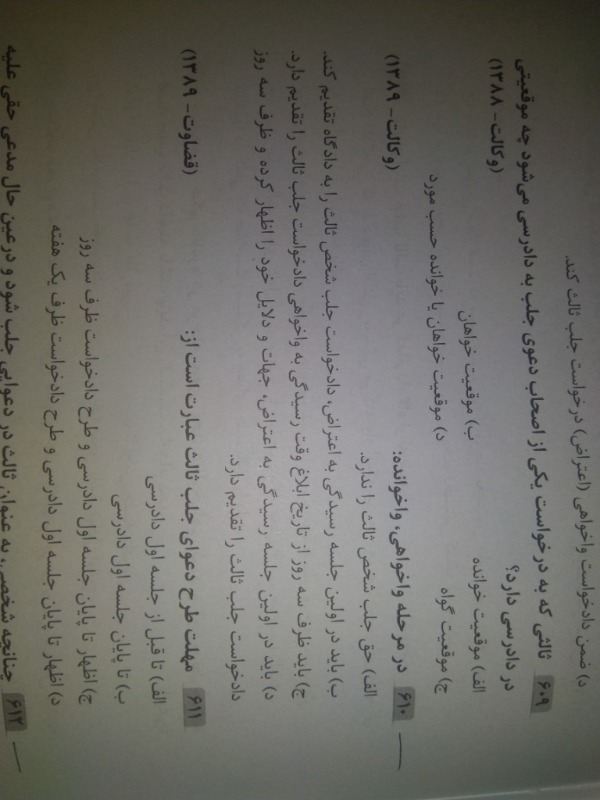 د) ضمن دادخواست واخواهی (اعتراض) درخواست جلب ثالث کند.
۶۰۹ ثالثی که به درخواست یکی از اصحاب دعوی جلب به دادرسی می‌شود چه موقعیتی
در دادرسی دارد؟ (وکالت - ۱۳۸۸)
الف) موقعیت خوانده ب) موقعیت خواهان
ج) موقعیت گواه د) موقعیت خواهان یا خوانده حسب مورد
۶۱۰ در مرحله واخواهی، واخوانده: (وکالت - ۱۳۸۹)
الف) حق جلب شخص ثالث را ندارد.
ب) باید در اولین جلسه رسیدگی به اعتراض، دادخواست جلب شخص ثالث را به دادگاه تقدیم کند.
ج) باید ظرف سه روز از تاریخ ابلاغ وقت رسیدگی به واخواهی دادخواست جلب ثالث را تقدیم دارد.
د) باید در اولین جلسه رسیدگی به اعتراض، جهات و دلایل خود را اظهار کرده و ظرف سه روز
دادخواست جلب ثالث را تقدیم دارد.
۶۱۱ مهلت طرح دعوای جلب ثالث عبارت است از: (قضاوت - ۱۳۸۹)
الف) تا قبل از جلسه اول دادرسی
ب) تا پایان جلسه اول دادرسی
ج) اظهار تا پایان جلسه اول دادرسی و طرح دادخواست ظرف سه روز
د) اظهار تا پایان جلسه اول دادرسی و طرح دادخواست ظرف یک هفته
۶۱۲ چنانچه شخصی، به عنوان ثالث در دعوایی جلب شود و در عین حال مدعی حقی علیه